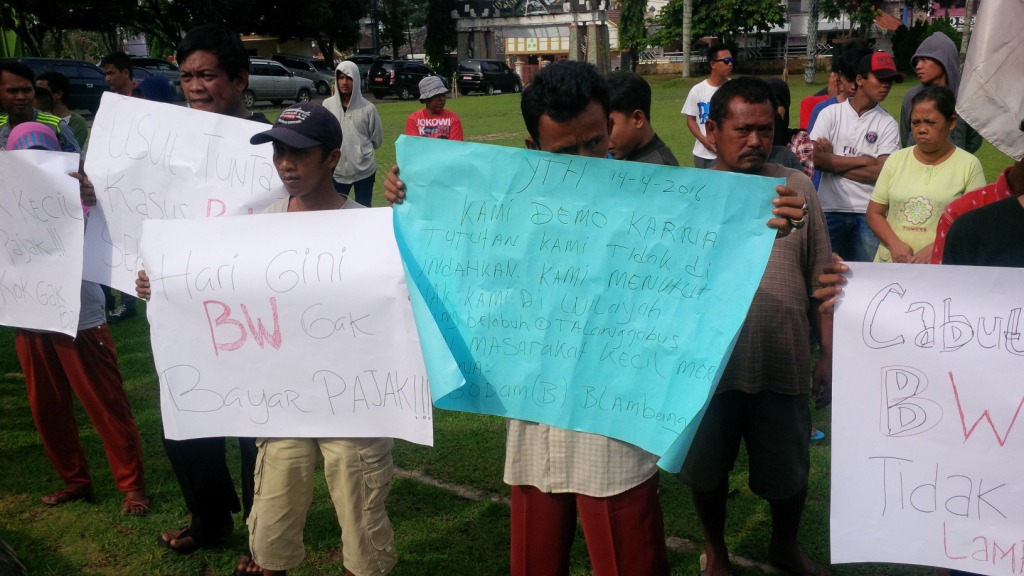 KECIL
PAJAK!!!
KOK GAK
USUT TUNTA
KASUS
Hari Gini
BW Gak
Bayar PAJAK!!!
JOKOWI
YTH 14-4-2016
KAMI DEMO KARNA
TUTUHAN KAMI Tidak di
INDAHKAN KAMI MENUNTUT
KAMI DI WILAYAH
MASARAKAT KECIL MER
BLAMBANGA
Cabut
BW
Tidak
LAMP